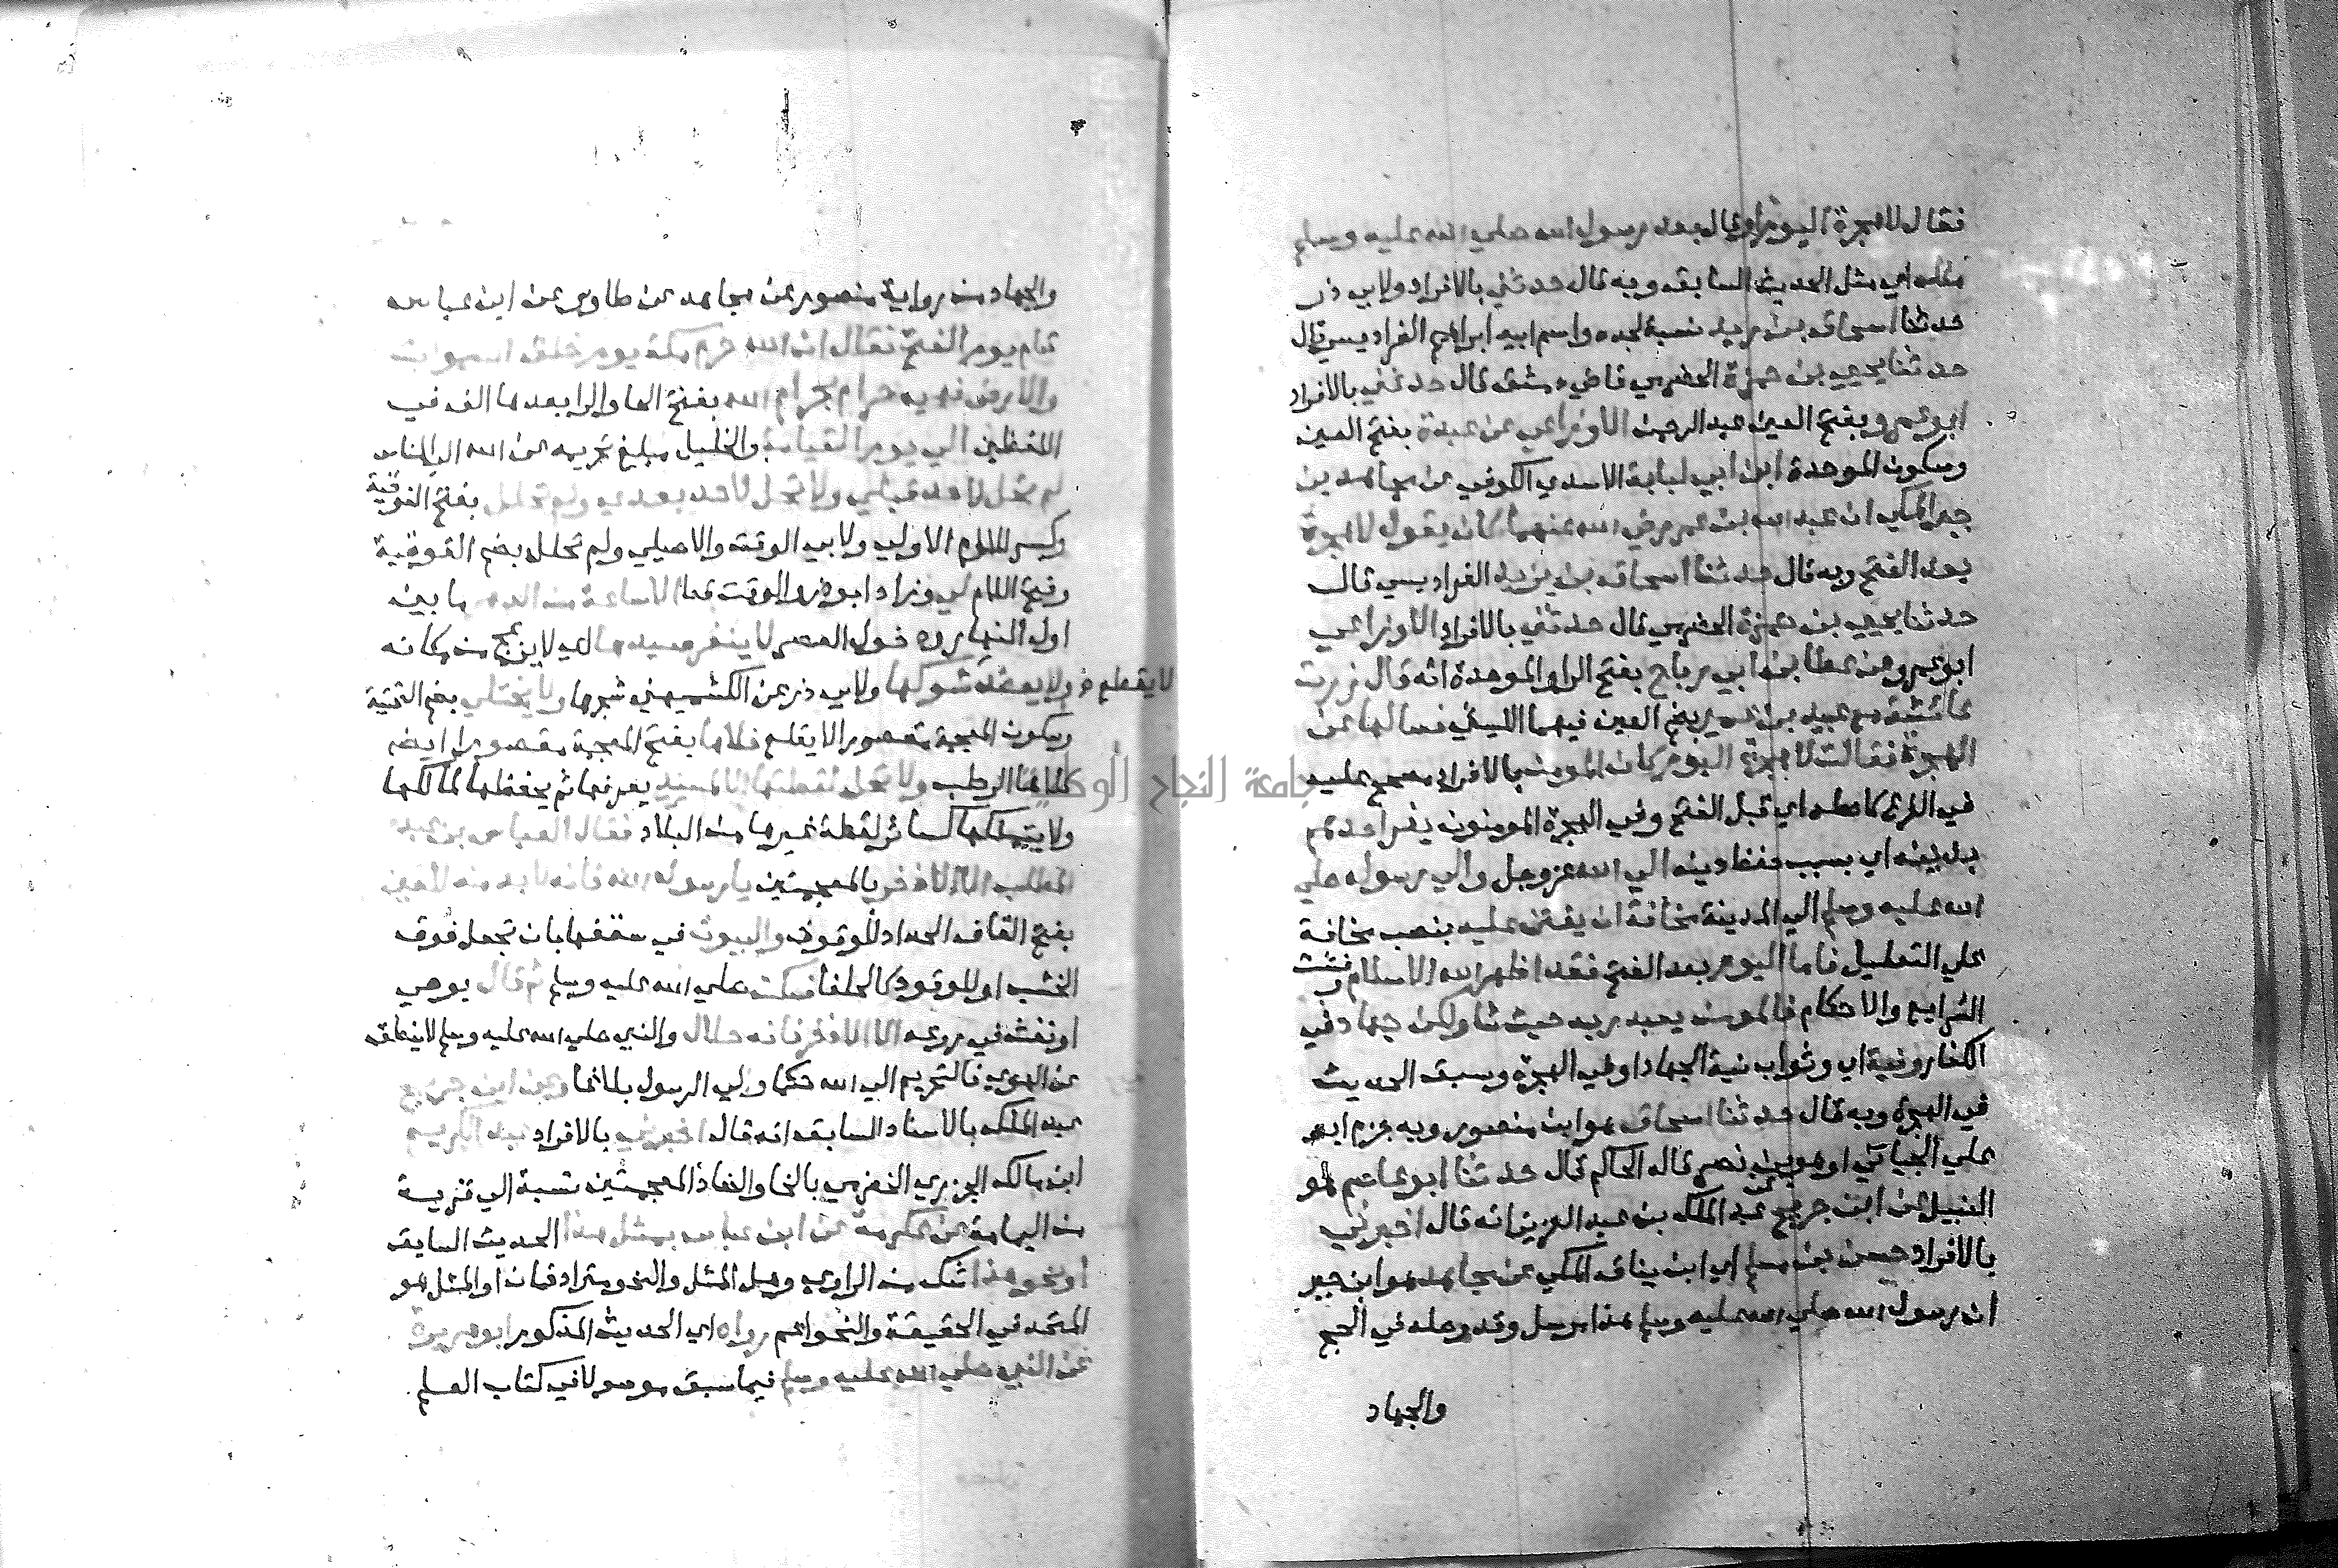 فقال لا هجرة اليوم او قال بعد رسول الله صلي الله عليه وسلم
مثله اي مثل الحديث السابق وبه قال حدثني بالافراد ولابي ذر
حدثنا اسحاق بن يزيد نسبة لجده واسم ابيه ابراهيم الفراديسي قال
حدثنا يحيي بن حمزة الحضرمي قاضي دمشق قال حدثني بالافراد
ابو عمرو بفتح العين عبد الرحمن الاوزاعي عن عبدة بفتح العين
وسكون الموحدة ابن ابي لبابة الاسدي الكوفي عن مجاهد بن
جبر المكي ان عبد الله بن عمر رضي الله عنهما كان يقول لا هجرة
بعد الفتح وبه قال حدثنا اسحاق بن يزيد الفراديسي قال
حدثنا يحيي بن حمزة الحضرمي قال حدثني بالافراد الاوزاعي
ابو عمرو عن عطا بن ابي رباح بفتح الرا والموحدة انه قال زرت
عائشة مع عبيد بن عمير بضم العين فيهما الليثي فسالها عن
الهجرة فقالت لا هجرة اليوم كان المومن بالافراد مصحح عليه
في الفرع كاصله اي قبل الفتح وفي الهجرة المومنون يفر احدهم
بدينه اي بسبب حفظ دينه الي الله عز وجل والي رسوله صلي
الله عليه وسلم الي المدينة مخافة ان يفتن عليه بنصب مخافة
علي التعليل فاما اليوم بعد الفتح فقد اظهر الله الاسلام وفشت
الشرايع والاحكام فالمومن يعبد ربه حيث شا ولكن جهاد في
الكفار ونية اي وثواب نية الجهاد او في الهجرة وسبق الحديث
في الهجرة وبه قال حدثنا اسحاق هو ابن منصور وبه جزم ابو
علي الجياني او هو بن نصر قاله الحاكم قال حدثنا ابو عاصم هو
النبيل عن ابن جريج عبد الملك بن عبد العزيز انه قال اخبرني
بالافراد حسن بن مسلم اي ابن يناق المكي عن مجاهد هو ابن جبر
ان رسول الله صلي الله عليه وسلم هذا مرسل وقد وصله في الحج
والجهاد
والجهاد من رواية منصور عن مجاهد عن طاوس عن ابن عباس
قام يوم الفتح فقال ان الله حرم مكة يوم خلق السموات
والارض فهي حرام بحرام الله بفتح الحا والرا بعدها الف في
اللفظين الي يوم القيامة والخليل مبلغ تحريمه عن الله الي الناس
لم تحل لاحد قبلي ولا تحل لاحد بعدي ولم تحلل بفتح الفوقية
وكسر اللام الاولي ولابي الوقت والاصيلي ولم تحلل بضم الفوقية
وفتح اللام لي وزاد ابو ذر والوقت قط الا ساعة من الدهر ما بين
اول النهار ودخول العصر لا ينفر صيدها اي لا يزعج من مكانه
لا يقطع ولا يعضد شوكها ولابي ذر عن الكشميهني شجرها ولا يختلي بضم التحتية
وسكون المعجمة مقصورا لا يقلع خلاها بفتح المعجمة مقصورا ايضا
كلاها الرطب ولا تحل لقطتها الا لمنشد يعرفها ثم يحفظها لمالكها
ولا يتملكها كسائر لقطة غيرها من البلاد فقال العباس بن عبد
المطلب الا الاذخر بالمعجمتين يا رسول الله فانه لا بد منه للقين
بفتح القاف الحداد للوقود والبيوت في سقفها بان تجعل فوق
الخشب او للوقود كالحلفا فسكت صلي الله عليه وسلم ثم قال بوحي
او نفث في روعه الا الاذخر فانه حلال والنبي صلي الله عليه وسلم لا ينطق
عن الهوي فالتحريم الي الله حكما والي الرسول بلاغا وعن ابن جريج
عبد الملك بالاسناد السابق انه قال اخبرني بالافراد عبد الكريم
ابن مالك الجزري الخضرمي بالخا والضاد المعجمتين نسبة الي قرية
من اليمامة عن عكرمة عن ابن عباس بمثل هذا الحديث السابق
او نحو هذا شك من الراوي وهل المثل والنحو مترادفان او المثل هو
المتحد في الحقيقة والنحو اعم رواه اي الحديث المذكور ابو هريرة
عن النبي صلي الله عليه وسلم فيما سبق موصولا في كتاب العلم
جامعة النجاح الوطنية